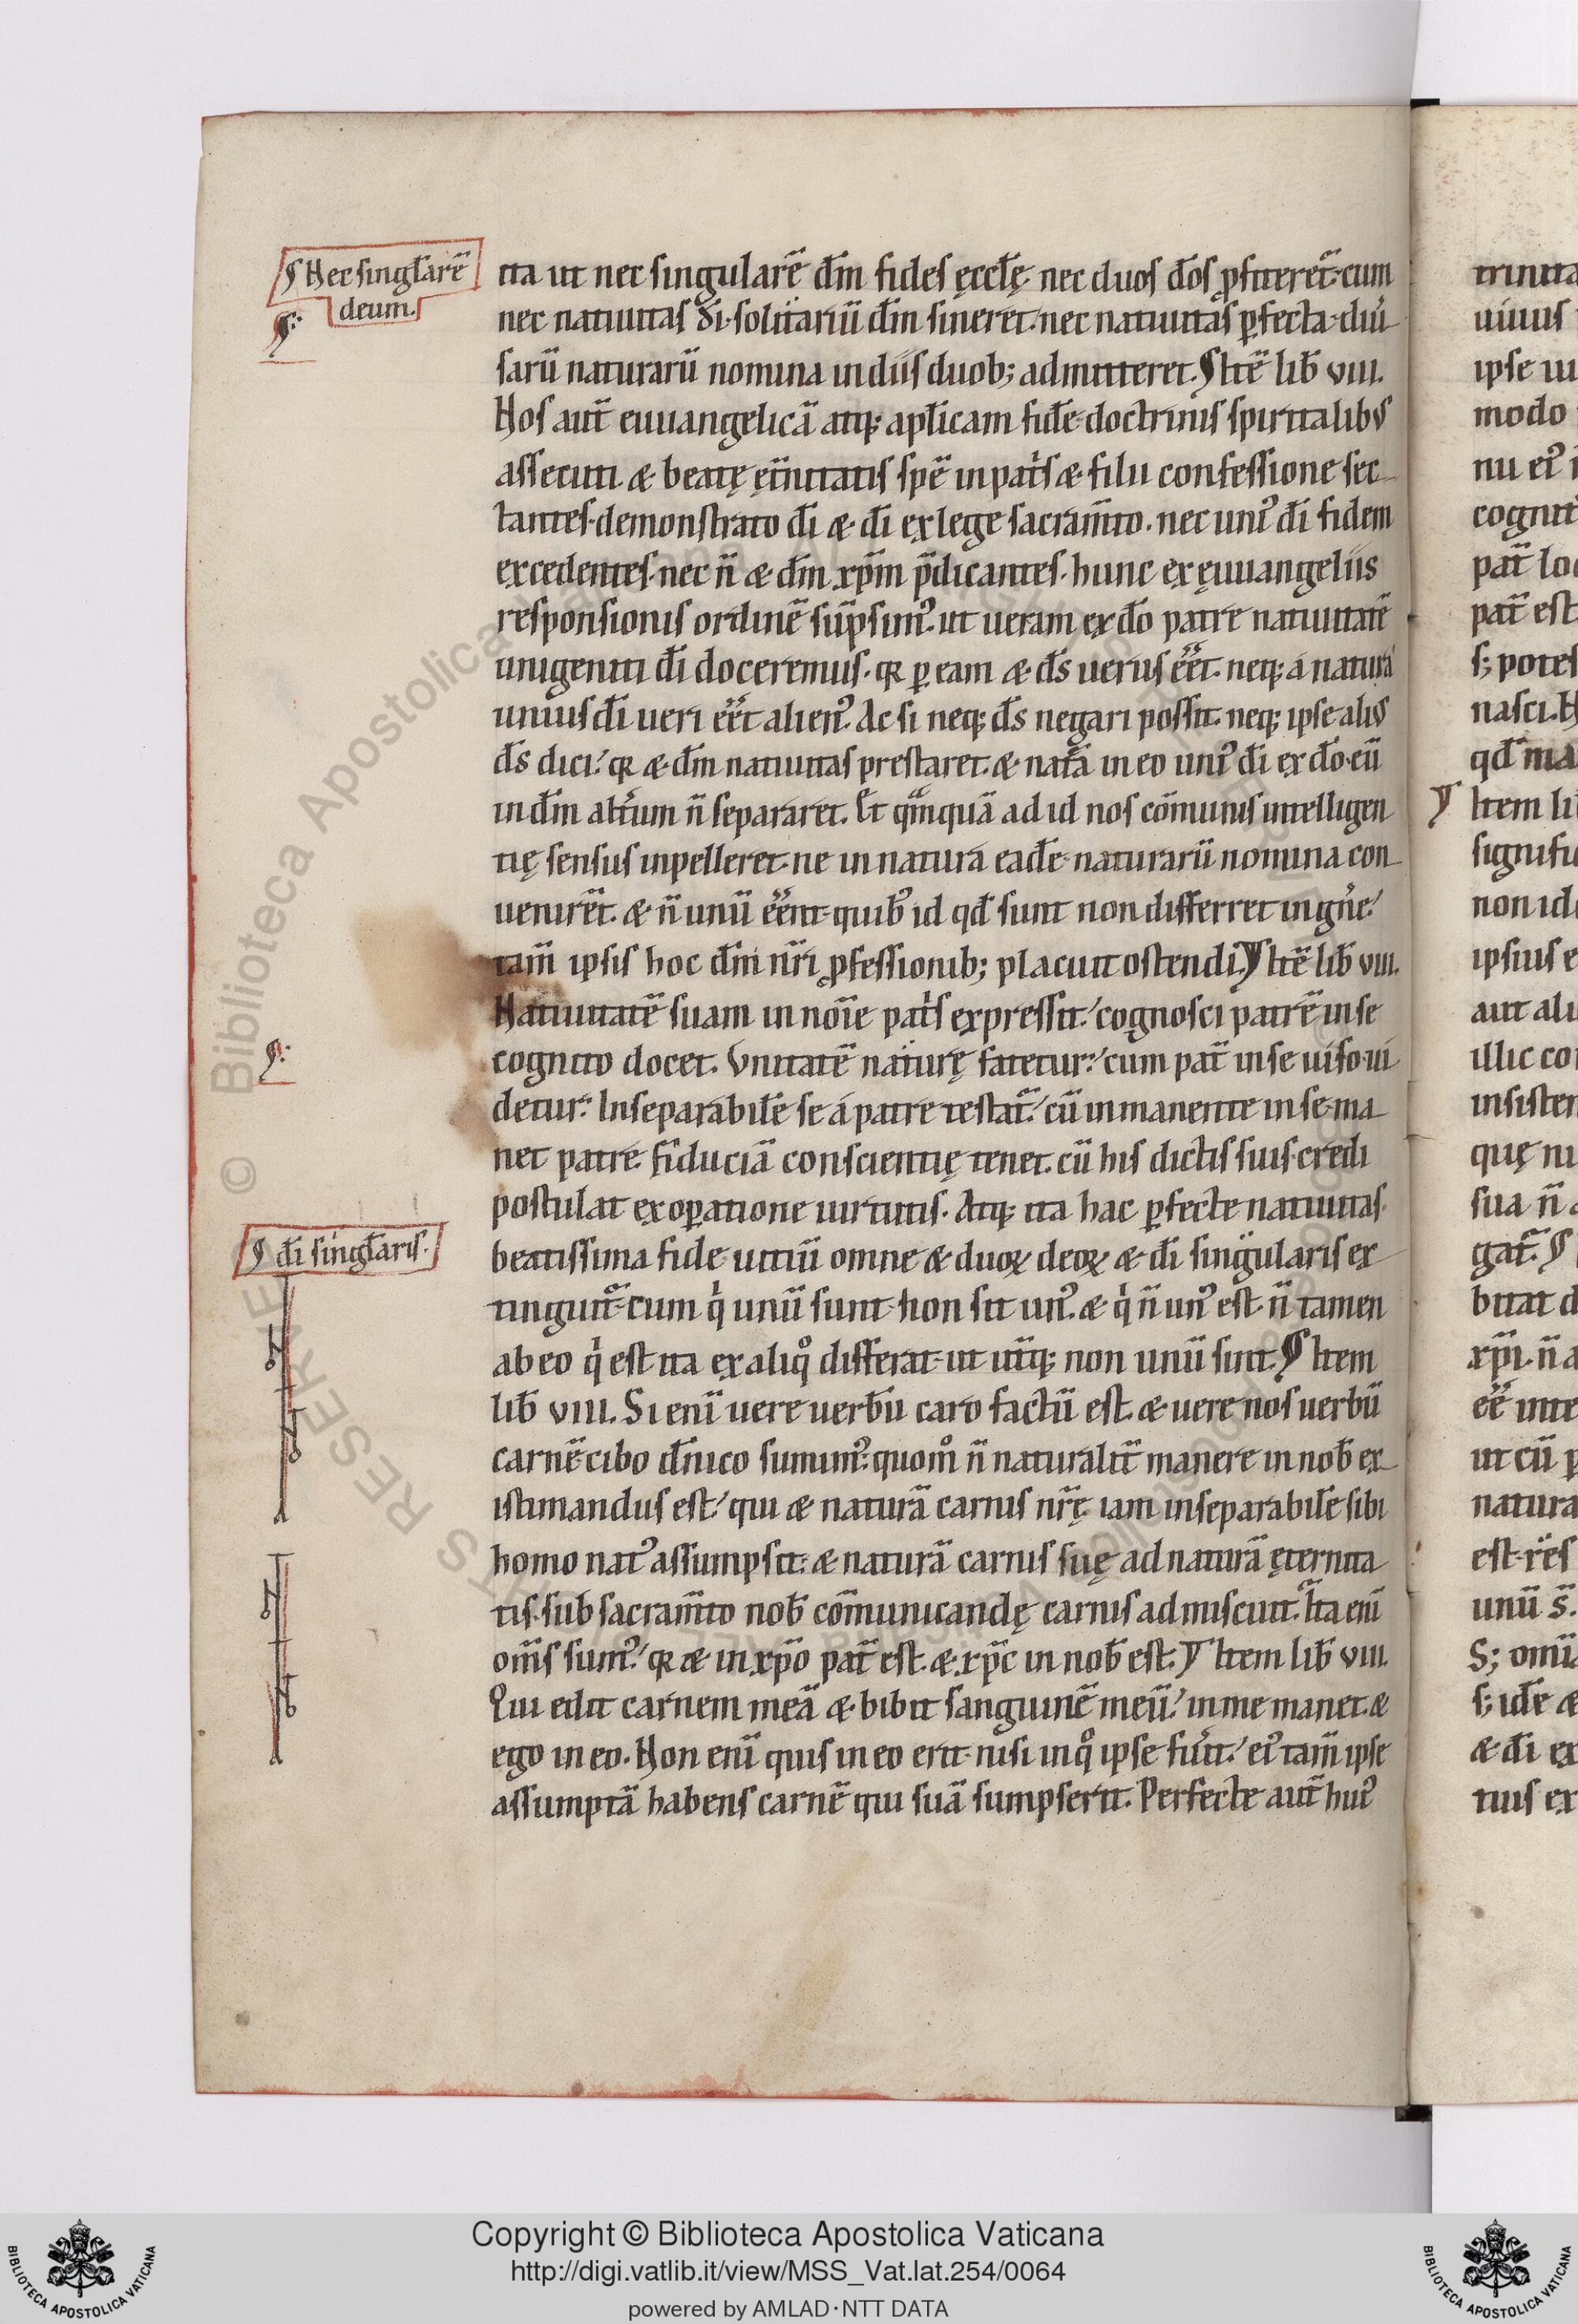 ita ut nec singularē dm̄ fides ęccl̄ę· nec duos do̅s ꝓfiteret̃· cum
nec natiuitas dī· solitariū dm̄ sineret· nec natiuitas ꝑfecta· diu̾
sarū naturarū nomina in diis duob; admitteret. ¶ Itē lib̄ VIII.
Nos aut̄ euuangelicā atq; apl̄icam fidē· doctrinis spiritalibus
assecuti· & beatę ęt̄nitatis spē in pat̾s & filii confessione sec
tantes· demonstrato dī & dī ex lege sacram̄to. nec uni᷒ dī fidem
excedentes· nec n̄ & dm̄ xp̄m p̄dicantes. hunc ex ęuuangeliis
responsionis ordinē sūpsim᷒· ut ueram ex do̅ patre natiuitatē
unigeniti dī doceremus· qꝛ ꝑ eam & ds̄ uerus eēt· neq; a natura
unius dī ueri eēt alien᷒. Ac si neq; ds̄ negari possit· neq; ipse alius
ds̄ dici· qꝛ & dm̄ natiuitas prestaret· & nat̄a in eo uni᷒ dī ex do̅· eū
in dm̄ alt̾um n̄ separaret. Et qm̄quā ad id nos cōmunis intelligen
tię sensus inpelleret· ne in natura eadē· naturarū nomina con
uenirēt· & n̄ unū eēnt· quib᷒ id qd̄ sunt non differret in gn̾e·
tam̄ ipsis hoc dm̄ nr̄i ꝓfessionib; placuit ostendi. ¶ Itē lib̄ VIII.
Natiuitatē suam in noīe pat̾s expressit· cognosci patrē in se
cognito docet. Vnitatē naturę fatetur· cum pat̄ in se uiso ui
detur· Inseparabilē se a patre testat̃· cū in manente in se· ma
net patre· fiduciā conscientię tenet· cū his dictis suis· credi
postulat ex oꝑatione uirtutis. Atq; ita hac ꝑfecte natiuitas
beatissima fide· uitiū omne & duoꝝ deoꝝ & dī singularis ex
tinguit̃· cum q̾ unū sunt· non sit un᷒· & q̾ n̄ un᷒ est· n̄ tamen
ab eo q̾ est· ita ex aliq° differat· ut ut̄q; non unū sint. ¶ Item
lib̄ VIII. Si enī uere uerbū caro factū est· & uere nos uerbū
carnē· cibo dn̄ico sumim᷒· quom° n̄ naturalit̄ manere in nob̄ ex
istimandus est· qui & naturā carnis nr̄ę iam inseparabilē sibi
homo nat᷒ assumpsit· & naturā carnis suę ad naturā ęternita
tis· sub sacram̄to nob̄ cōmunicandę carnis admiscuit. Ita enī
om̄s sum᷒· qꝛ & in xp̄o pat̄ est· & xp̄c in nob̄ est. ¶ Item lib̄ VIII.
Qui edit carnem meā & bibit sanguinē meū· in me manet· &
ego in eo. Non enī quis in eo erit· nisi in q° ipse fu̾it· ei᷒ tam̄ ipse
assumptā habens carnē qui suā sumpserit. Perfecte aut̄ hui᷒
¶ Nec singl̄arē
deum.
¶ dī singl̄aris.
trinita
uiuus
ipse ui
modo
nu ei᷒
cognit
pat̄ loq
pat̄ est
s; potes
nasci. N
qd̄ ma
¶ Item lib
signific
non ide
ipsius e
aut ali
illic co
insisten
quę ni
sua n̄ a
gat̃. ¶
bitat d
xp̄i· n̄ a
eē inte
ut cū p
natura
est· res
unū s̄.
S; omī
s; idē &
& dī ex
tuis ex
© Biblioteca Apostolica Vaticana
Copyright © Biblioteca Apostolica Vaticana
http://digi.vatlib.it/view/MSS_Vat.lat.254/0064
powered by AMLAD·NTT DATA
BIBLIOTECA APOSTOLICA VATICANA
BIBLIOTECA APOSTOLICA VATICANA